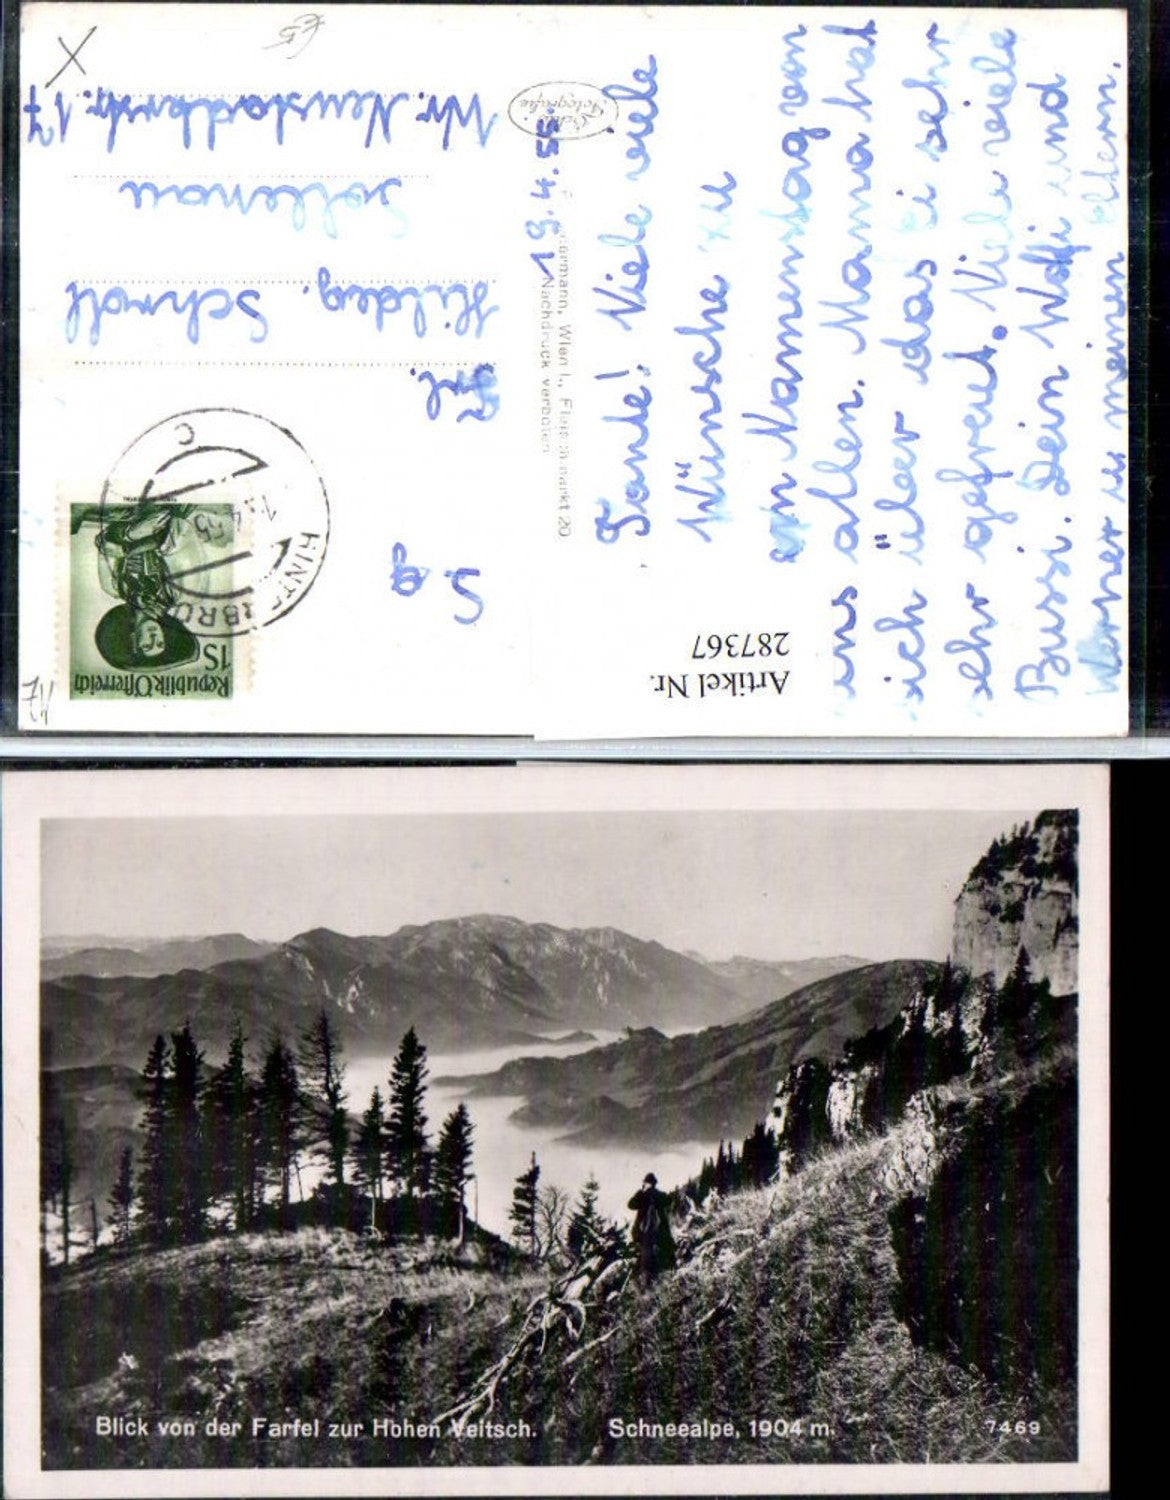 19.4.55
Tante! Viele viele
Wünsche zu
Namenstag von
uns allen. Mama hat
sich über das Ei sehr
sehr gefreut. Viele viele
Bussi. Dein Wolfi und
Werner u meinen Eltern.
S. g
Frl.
Hildeg. Schmoll
Sollenau
Wr. Neustadterstr. 17
Echte
Fotografie
Wien I., Fleischmarkt 20
Nachdruck verboten
Republik Österreich
1S
C
Artikel Nr.
287367
X
£5
Blick von der Farfel zur Hohen Veitsch. Schneealpe, 1904 m. 7469